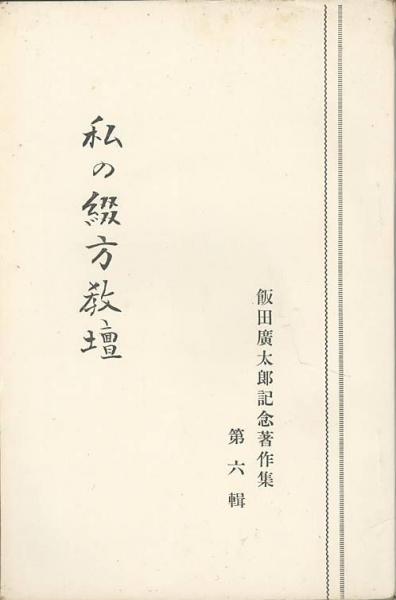 飯田廣太郎記念著作集
第六輯
私の綴方敎壇